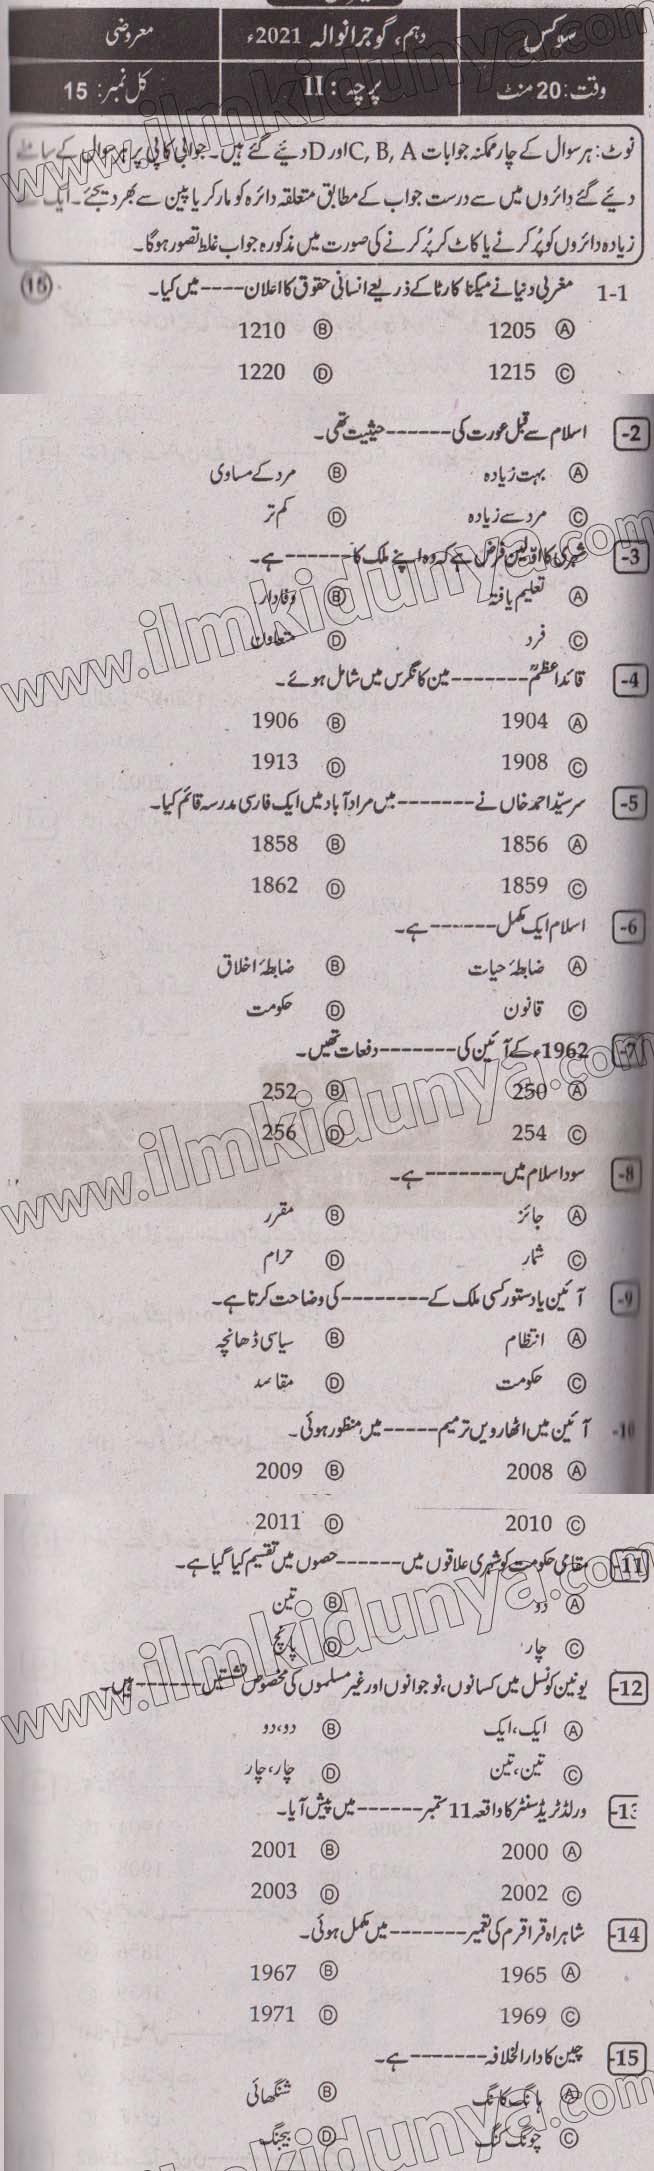 سوکس
دہم، گوجرانوالہ 2021ء
معروضی
وقت: 20 منٹ
پرچہ : II
کل نمبر: 15
نوٹ: ہر سوال کے چار ممکنہ جوابات C, B, A اور D دیئے گئے ہیں۔ جوابی کاپی پر ہر سوال کے سامنے
دیئے گئے دائروں میں سے درست جواب کے مطابق متعلقہ دائرہ کو مارکر یا پین سے بھر دیجئے۔ ایک سے
زیادہ دائروں کو پُر کرنے یا کاٹ کر پُر کرنے کی صورت میں مذکورہ جواب غلط تصور ہوگا۔
1-1 مغربی دنیا نے میگنا کارٹا کے ذریعے انسانی حقوق کا اعلان ---- میں کیا۔ (15)
Ⓐ 1205 Ⓑ 1210
Ⓒ 1215 Ⓓ 1220
-2 اسلام سے قبل عورت کی ------ حیثیت تھی۔
Ⓐ بہت زیادہ Ⓑ مرد کے مساوی
Ⓒ مرد سے زیادہ Ⓓ کم تر
-3 شہری کا اولین فرض ہے کہ وہ اپنے ملک کا ------ ہے۔
Ⓐ تعلیم یافتہ Ⓑ وفادار
Ⓒ فرد Ⓓ متعاون
-4 قائداعظمؒ ------- مین کانگرس میں شامل ہوئے۔
Ⓐ 1904 Ⓑ 1906
Ⓒ 1908 Ⓓ 1913
-5 سرسیّد احمد خاں نے ------- میں مراد آباد میں ایک فارسی مدرسہ قائم کیا۔
Ⓐ 1856 Ⓑ 1858
Ⓒ 1859 Ⓓ 1862
-6 اسلام ایک مکمل ------ ہے۔
Ⓐ ضابطۂ حیات Ⓑ ضابطۂ اخلاق
Ⓒ قانون Ⓓ حکومت
-7 1962ء کے آئین کی ------- دفعات تھیں۔
Ⓐ 250 Ⓑ 252
Ⓒ 254 Ⓓ 256
-8 سود اسلام میں ------- ہے۔
Ⓐ جائز Ⓑ مقرر
Ⓒ شمار Ⓓ حرام
-9 آئین یا دستور کسی ملک کے -------- کی وضاحت کرتا ہے۔
Ⓐ انتظام Ⓑ سیاسی ڈھانچہ
Ⓒ حکومت Ⓓ مقاصد
-10 آئین میں اٹھارویں ترمیم ----- میں منظور ہوئی۔
Ⓐ 2008 Ⓑ 2009
Ⓒ 2010 Ⓓ 2011
-11 مقامی حکومت کو شہری علاقوں میں ------ حصوں میں تقسیم کیا گیا ہے۔
Ⓐ دو Ⓑ تین
Ⓒ چار Ⓓ پانچ
-12 یونین کونسل میں کسانوں، نوجوانوں اور غیر مسلموں کی مخصوص نشستیں ------ ہیں۔
Ⓐ ایک، ایک Ⓑ دو، دو
Ⓒ تین، تین Ⓓ چار، چار
-13 ورلڈ ٹریڈ سنٹر کا واقعہ 11 ستمبر ------ میں پیش آیا۔
Ⓐ 2000 Ⓑ 2001
Ⓒ 2002 Ⓓ 2003
-14 شاہراہ قراقرم کی تعمیر ------- میں مکمل ہوئی۔
Ⓐ 1965 Ⓑ 1967
Ⓒ 1969 Ⓓ 1971
-15 چین کا دارالخلافہ ------- ہے۔
Ⓐ ہانگ کانگ Ⓑ شنگھائی
Ⓒ چونگ کنگ Ⓓ بیجنگ
www.ilmkidunya.com
www.ilmkidunya.com
www.ilmkidunya.com
www.ilmkidunya.com
www.ilmkidunya.com